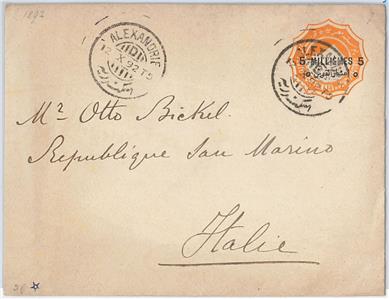 1892
ALEXANDRIE
12 X 92 T5
5 MILLIEMES 5
Mr. Otto Bickel.
Republique San Marino
Italie